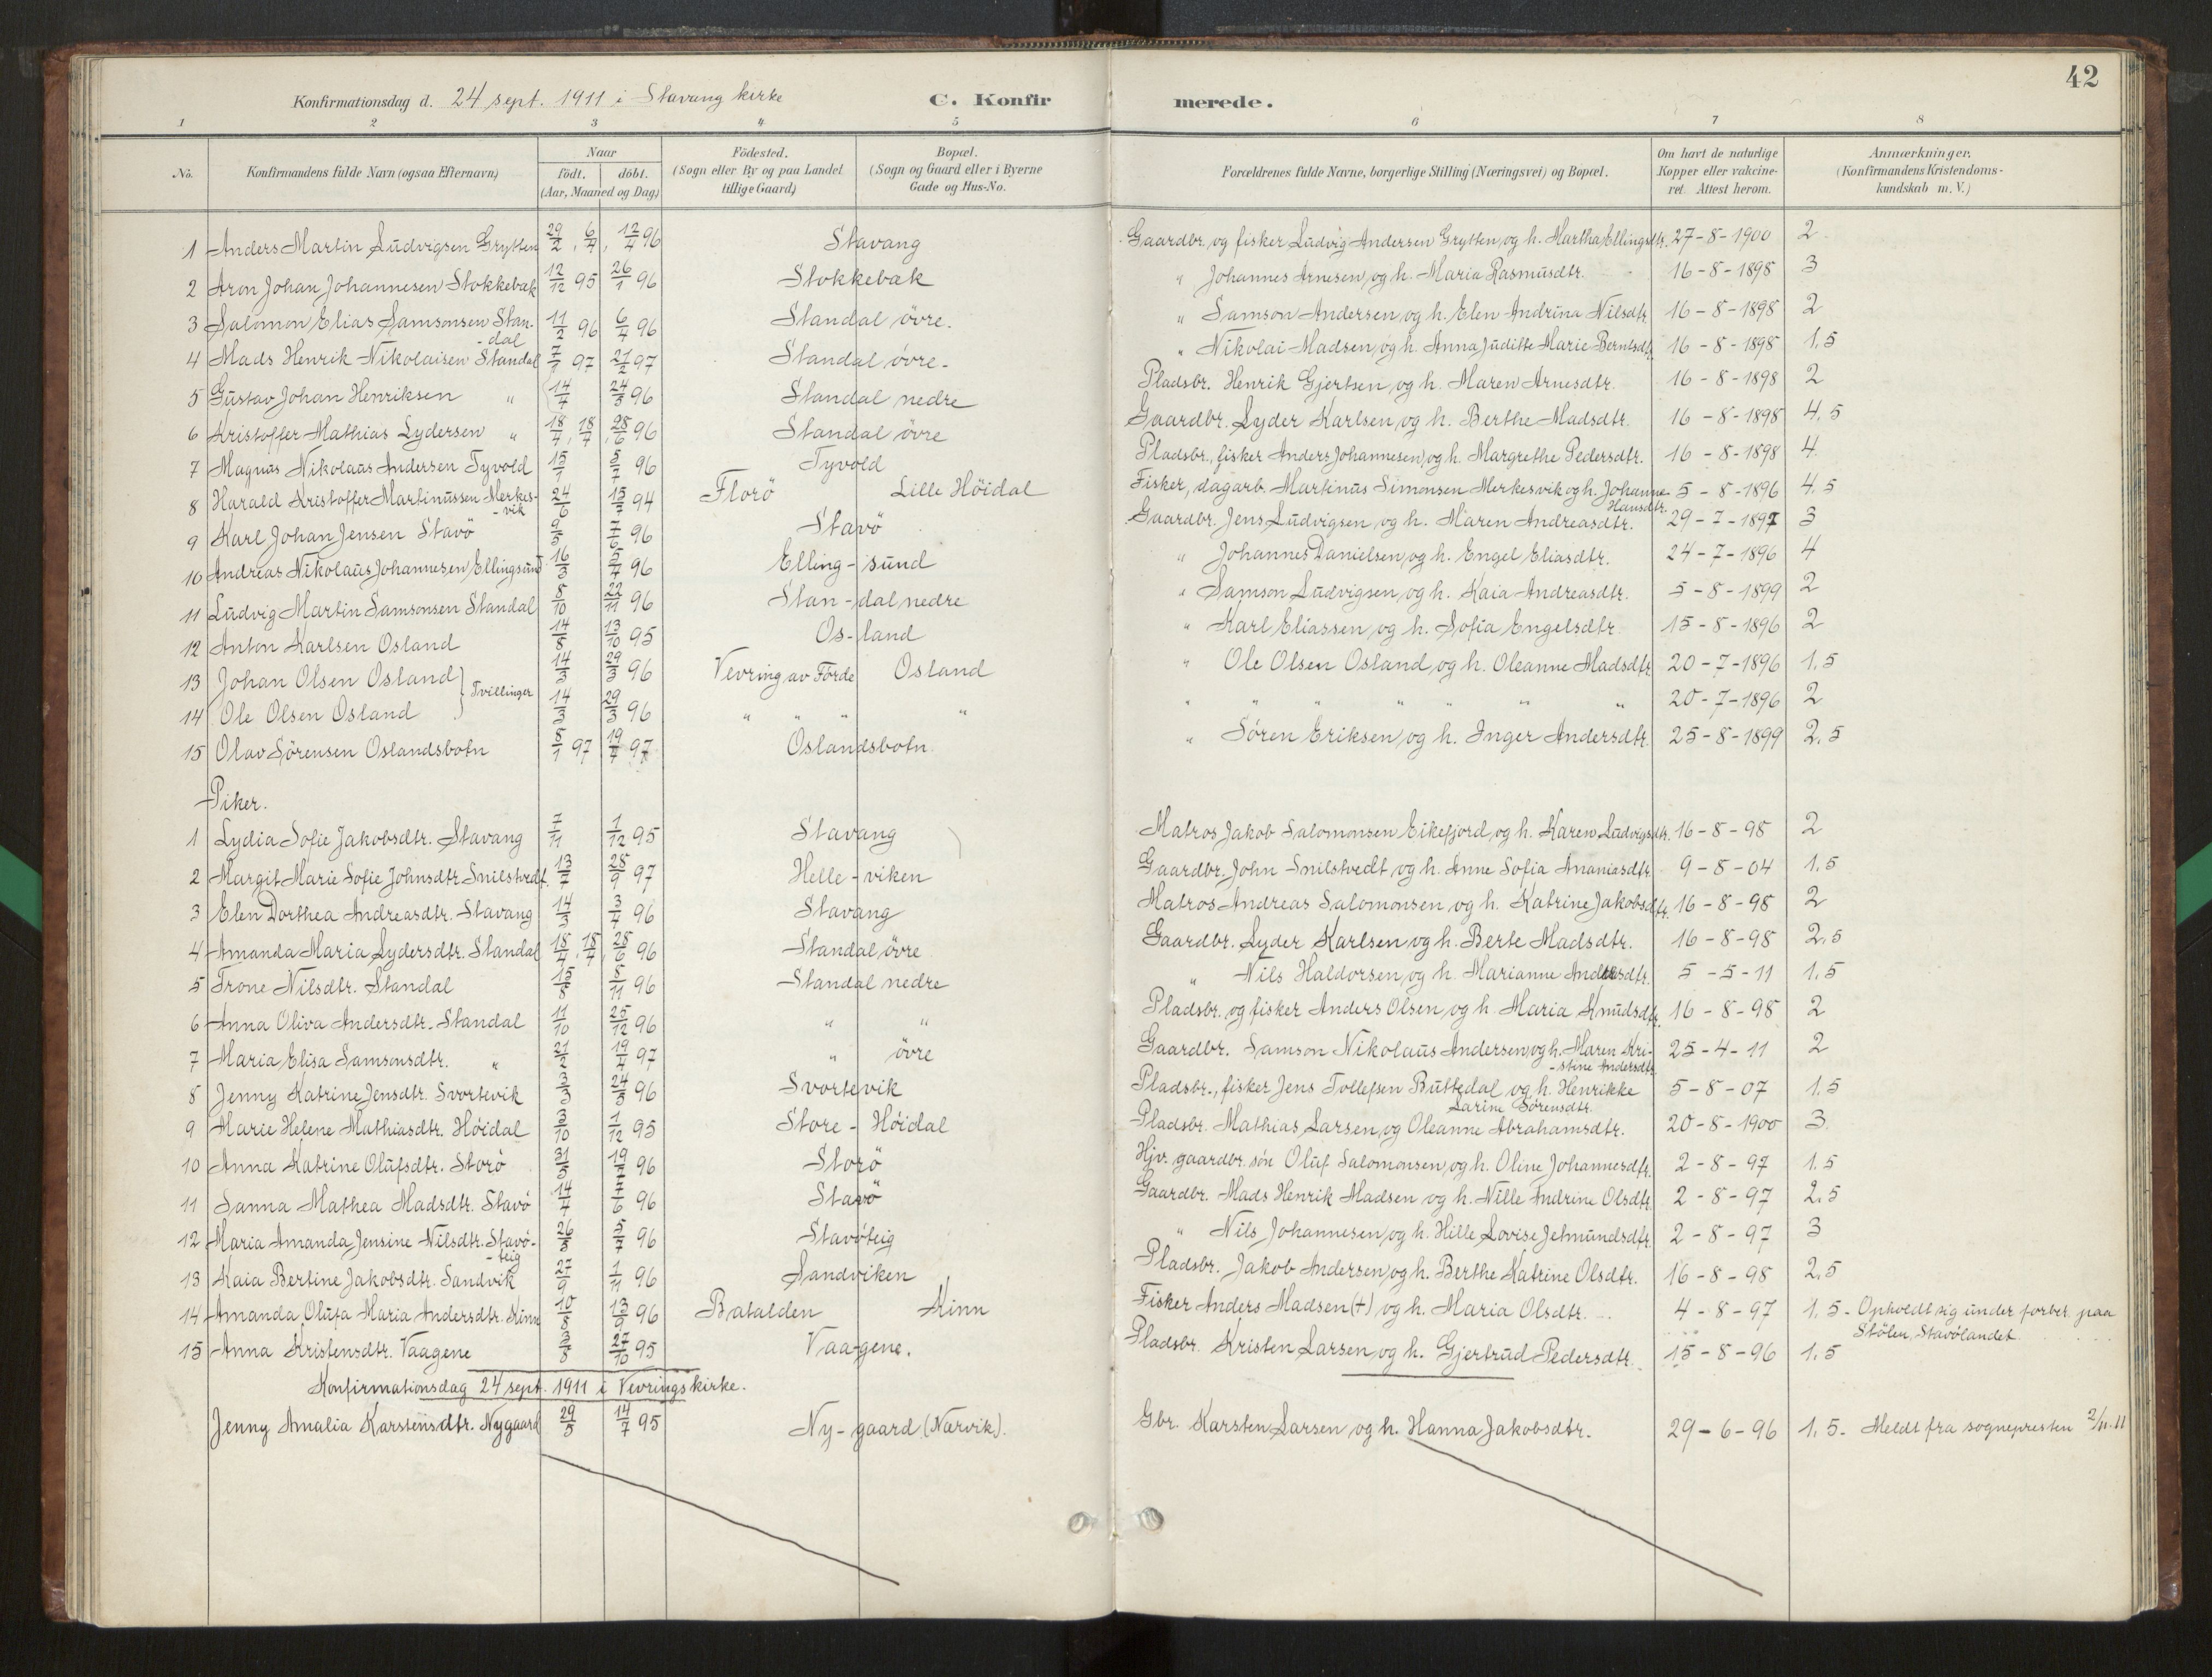 42
Konfirmationsdag d. 24 sept. 1911 i Stavang kirke C. Konfir merede.
1 2 3 4 5 6 7 8
No. Konfirmandens fulde Navn (ogsaa Efternavn) Naar födt. döbt. (Aar, Maaned og Dag) Födested. (Sogn eller By og paa Landet tillige Gaard) Bopæl. (Sogn og Gaard eller i Byerne Gade og Hus-No. Forældrenes fulde Navne, borgerlige Stilling (Næringsvei) og Bopæl. Om havt de naturlige Kopper eller vakcineret. Attest herom. Anmærkninger. (Konfirmandens Kristendomskundskab m. V.)
1 Anders Martin Ludvigsen Grytten 29/2, 6/4, 12/4 96 Stavang Gaardbr. og fisker Ludvig Andersen Grytten, og h. Martha Ellingsdtr. 27-8-1900 2
2 Aron Johan Johannesen Stokkebæk 12/12 95 26/1 96 Stokkebæk " Johannes Arnesen, og h. Maria Rasmusdtr. 16-8-1898 3
3 Salomon Elias Samsonsen Stan-dal 11/2 96 6/4 96 Standal övre. " Samson Andersen og h. Elen Andrina Nilsdtr. 16-8-1898 2
4 Mads Henrik Nikolaisen Standal 7/1 97 21/2 97 Standal övre. " Nikolai Madsen, og h. Anna Juditte Marie Berntsdtr. 16-8-1898 1,5
5 Gustav Johan Henriksen " 14/4 24/5 96 Standal nedre Pladsbr. Henrik Gjertsen og h. Maren Arnesdtr. 16-8-1898 2
6 Kristoffer Mathias Lydersen " 18/4, 18/4, 28/6 96 Standal övre Gaardbr. Lyder Karlsen og h. Berthe Madsdtr. 16-8-1898 4,5
7 Magnus Nikolaus Andersen Tyvold 15/1 5/7 96 Tyvold Pladsbr., fisker Anders Johannesen, og h. Margrethe Pedersdtr. 16-8-1898 4
8 Harald Kristoffer Martinussen Merkes-vik 24/6 15/7 94 Florö Lille Höidal Fisker, dagarb. Martinus Simonsen Merkesvik og h. Johanne Hansdtr. 5-8-1896 4,5
9 Karl Johan Jensen Stavö 9/5 7/6 96 Stavö Gaardbr. Jens Ludvigsen og h. Maren Andreasdtr. 29-7-1897 3
10 Andreas Nikolaus Johannesen Ellingsund 16/3 5/4 96 Elling-sund " Johannes Danielsen, og h. Engel Eliasdtr. 24-7-1896 4
11 Ludvig Martin Samsonsen Standal 8/10 22/11 96 Stan-dal nedre " Samson Ludvigsen, og h. Kaia Andreasdtr. 5-8-1899 2
12 Anton Karlsen Osland 14/8 13/10 95 Os-land " Karl Eliassen, og h. Sofia Engelsdtr. 15-8-1896 2
13 Johan Olsen Osland } Tvillinger 14/3 29/3 96 Vevring av Förde Osland " Ole Olsen Osland, og h. Oleanne Madsdtr. 20-7-1896 1,5
14 Ole Olsen Osland 14/3 29/3 96 " " " " " " " " " " " 20-7-1896 2
15 Olav Sörensen Oslandsbotn 8/1 97 19/4 97 Oslandsbotn " Sören Eriksen, og h. Inger Andersdtr. 25-8-1899 2,5
Piker.
1 Lydia Sofie Jakobsdtr. Stavang 7/11 1/12 95 Stavang Matros Jakob Salomonsen Eikefjord, og h. Karen Ludvigsdtr. 16-8-98 2
2 Margit Marie Sofie Johnsdtr. Snilstvedt. 13/7 28/9 97 Helle-viken Gaardbr. John Snilstvedt og h. Anne Sofia Ananiasdtr. 9-8-04 1,5
3 Elen Dorthea Andreasdtr. Stavang 14/3 3/4 96 Stavang Matros Andreas Salomonsen, og h. Katrine Jakobsdtr. 16-8-98 2
4 Amanda Maria Lydersdtr. Standal 18/4, 18/4, 28/6 96 Standal övre Gaardbr. Lyder Karlsen og h. Berte Madsdtr. 16-8-98 2,5
5 Trone Nilsdtr. Standal 15/8 8/11 96 Standal nedre " Nils Haldorsen, og h. Marianne Andersdtr. 5-5-11 1,5
6 Anna Oliva Andersdtr. Standal 11/10 25/12 96 " " Pladsbr. og fisker Anders Olsen, og h. Maria Knudsdtr. 16-8-98 2
7 Maria Elisa Samsonsdtr. " 21/2 19/4 97 " övre Gaardbr. Samson Nikolaus Andersen, og h. Maren Kri-stine Andersdtr. 25-4-11 2
8 Jenny Katrine Jensdtr. Svortevik 3/3 24/5 96 Svortevik Pladsbr., fisker Jens Tollefsen Buttedal og h. Henrikke Larine Sörensdtr. 5-8-07 1,5
9 Marie Helene Mathiasdtr. Höidal 3/10 1/12 95 Store-Höidal Pladsbr. Mathias Larsen, og Oleanne Abrahamsdtr. 20-8-1900 3
10 Anna Katrine Olufsdtr. Storö 31/5 19/7 96 Storö Hjv. gaardbr. sön Oluf Salomonsen, og h. Oline Johannesdtr. 2-8-97 1,5
11 Sanna Mathea Madsdtr. Stavö 14/4 7/6 96 Stavö Gaardbr. Mads Henrik Madsen og h. Nille Andrine Olsdtr. 2-8-97 2,5
12 Maria Amanda Jensine Nilsdtr. Stavö-teig 26/5 5/7 96 Stavöteig " Nils Johannesen, og h. Hille Lovise Jetmundsdtr. 2-8-97 3
13 Kaia Bertine Jakobsdtr. Sandvik 27/9 1/11 96 Sandviken Pladsbr. Jakob Andersen, og h. Berthe Katrine Olsdtr. 16-8-98 2,5
14 Amanda Olufa Maria Andersdtr. Kinn 10/8 13/9 96 Batalden Kinn Fisker Anders Madsen (+) og h. Maria Olsdtr. 4-8-97 1,5 - Opholdt sig under forber. paa Stölen, Stavölandet.
15 Anna Kristensdtr. Vaagene 3/8 27/10 95 Vaagene. Pladsbr. Kristen Larsen, og h. Gjertrud Pedersdtr. 15-8-96 1,5
Konfirmationsdag 24 sept. 1911 i Vevrings kirke.
Jenny Amalia Karstensdtr. Nygaard 29/5 14/7 95 Ny-gaard (Nærvik). Gbr. Karsten Larsen og h. Hanna Jakobsdtr. 29-6-96 1,5 - Meldt fra sognepresten 2/11-11